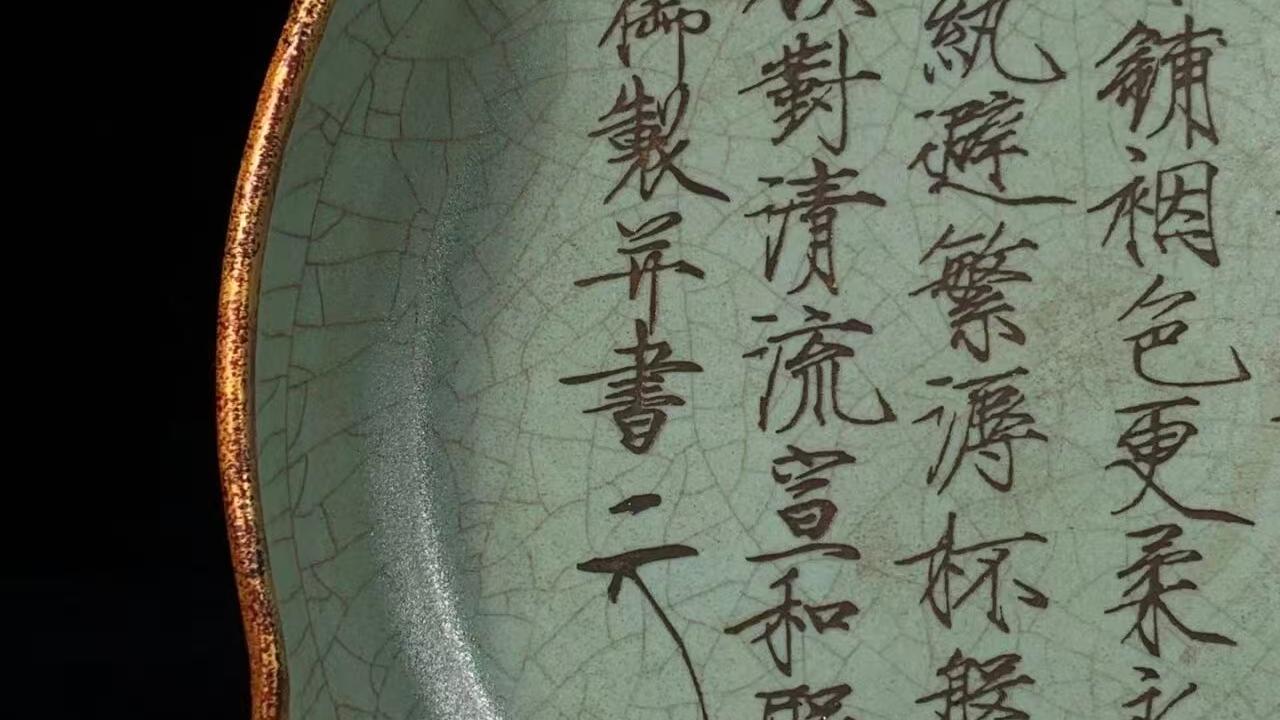 舖裀色更柔
紈避繁溽杯
對清流宣和
御製并書